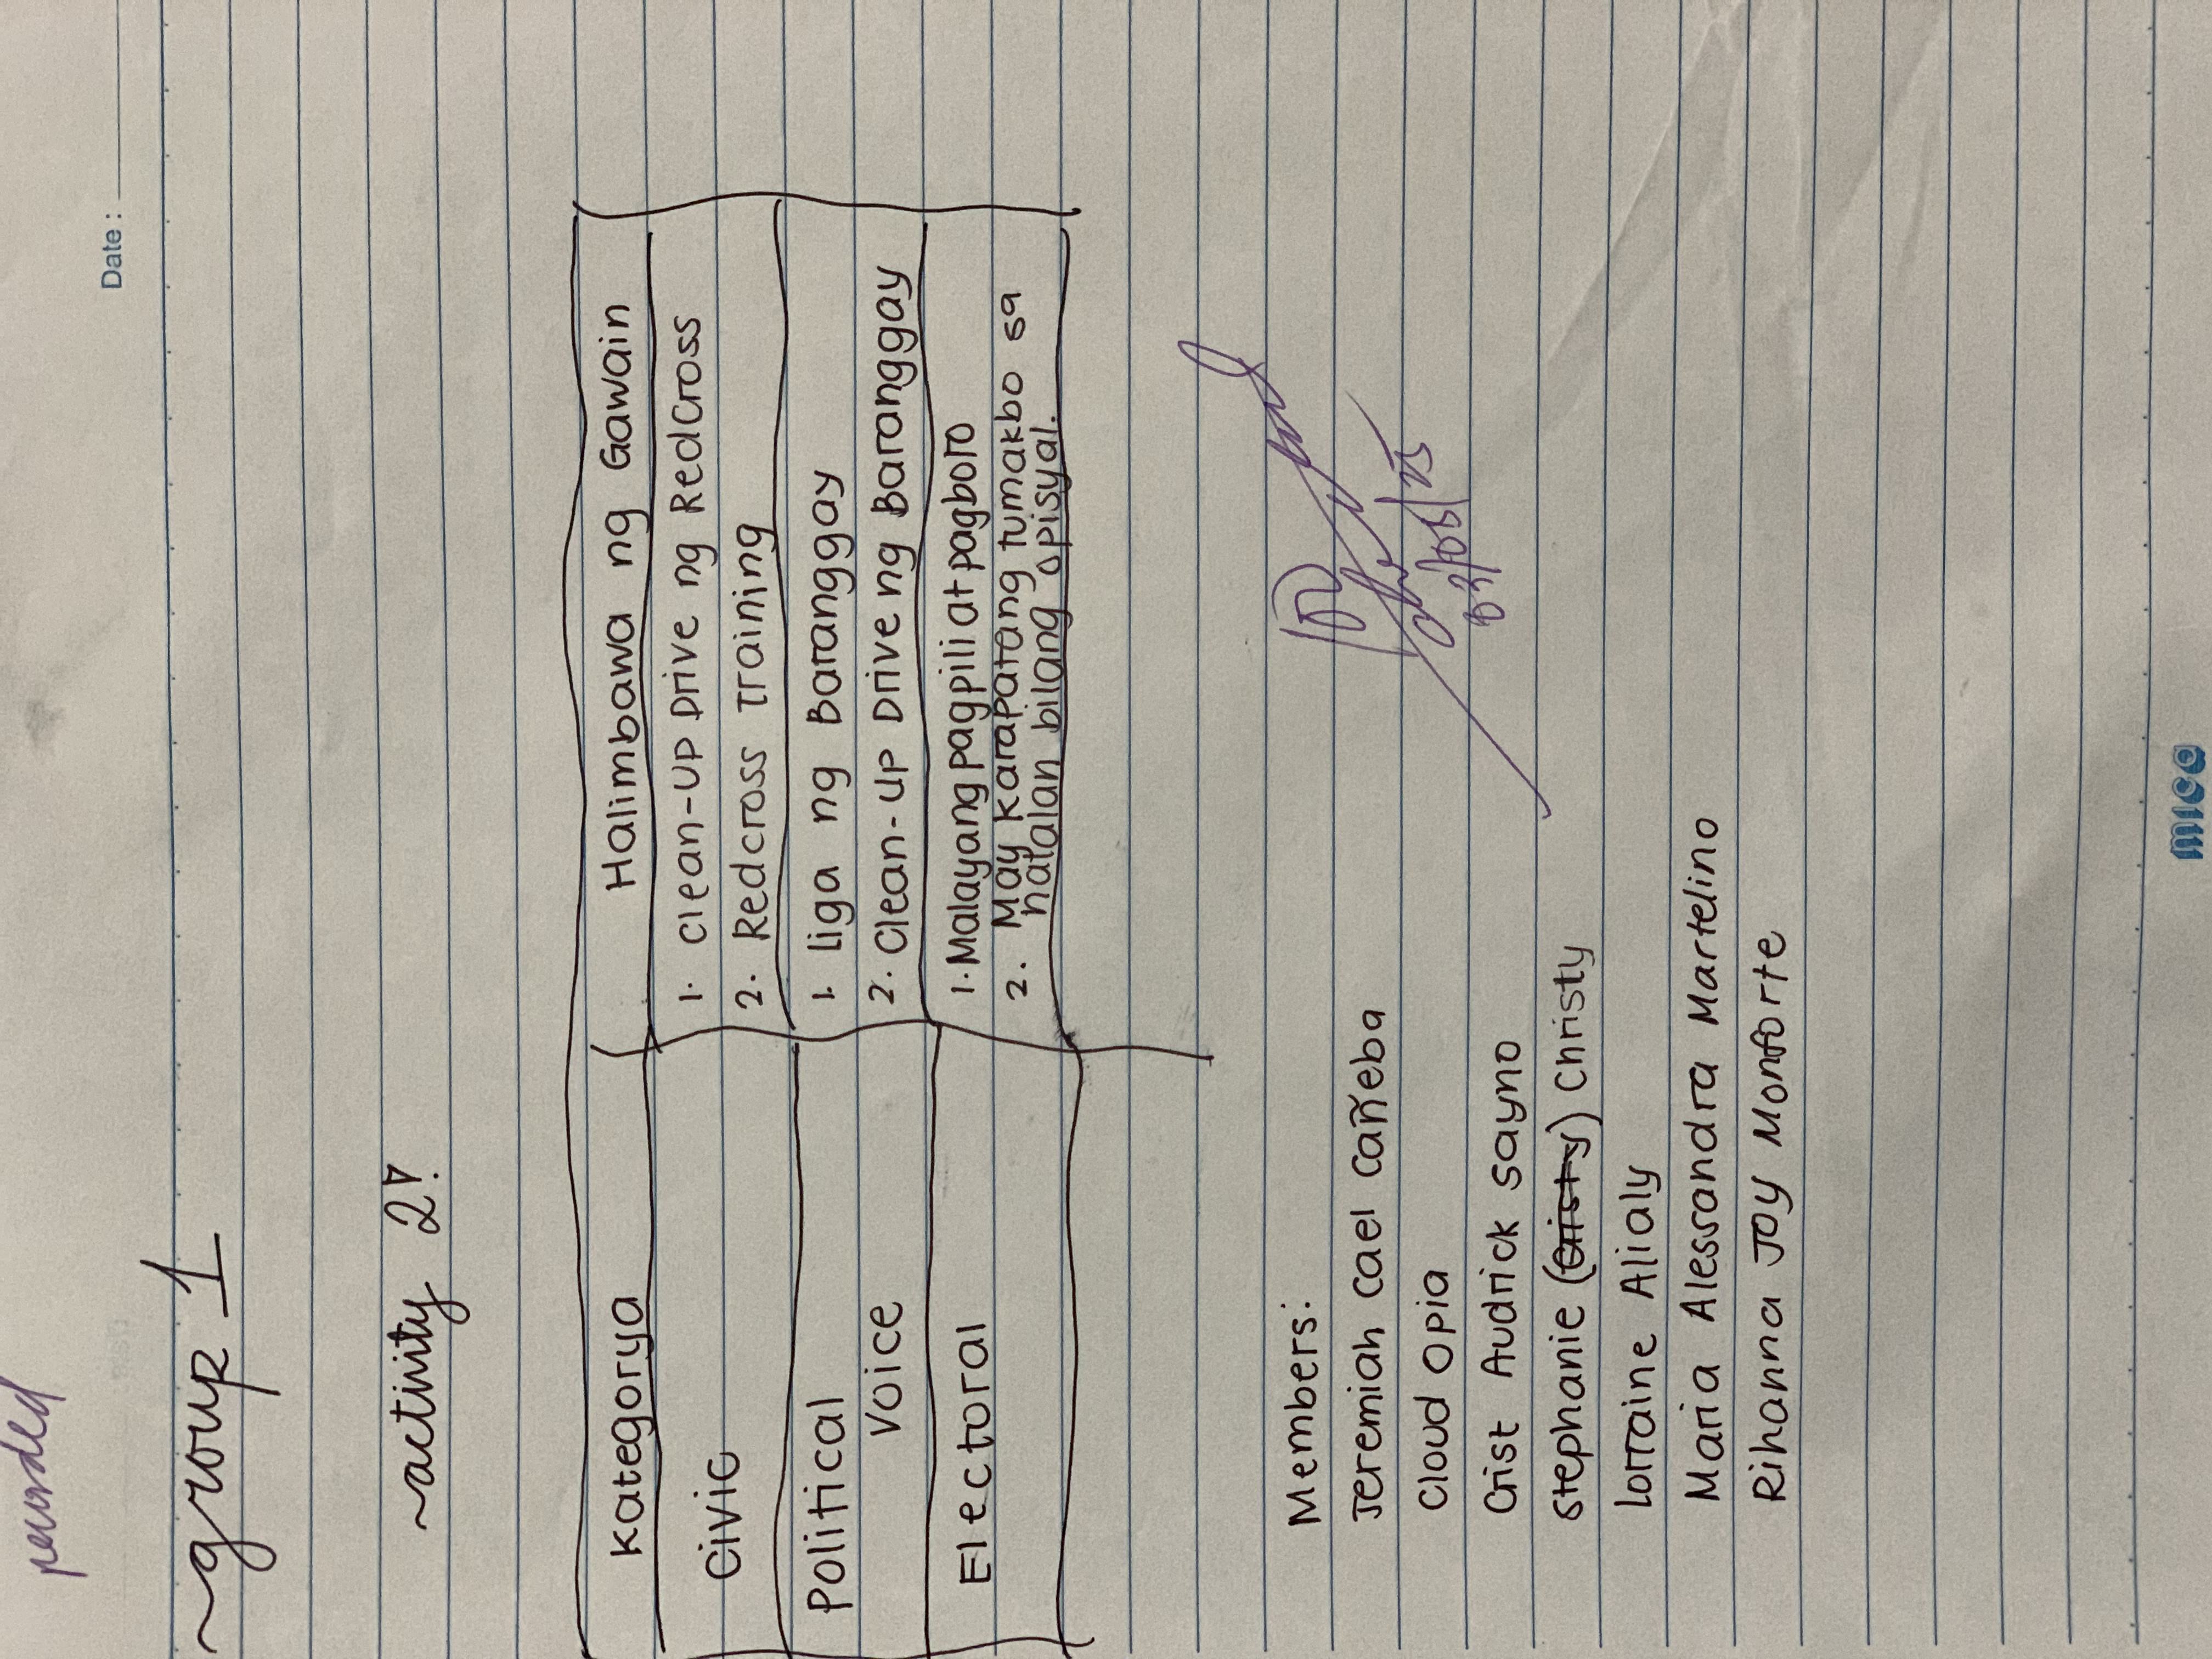 recorded
Date :
~group 1
~activity 2!
Kategorya
Halimbawa ng Gawain
Civic
1. Clean-up Drive ng RedCross
2. Redcross Training
Political
Voice
1. liga ng Baranggay
2. Clean-up Drive ng Baranggay
Electoral
1. Malayang pagpili at pagboto
2. May karapatang tumakbo sa
halalan bilang opisyal.
Members:
Jeremiah Cael Cañeba
Cloud Opia
Crist Audrick Sayno
Stephanie (Cristy) Christy
Lorraine Alialy
Maria Alessandra Martelino
Rihanna Joy Monforte
03/05/25
mica